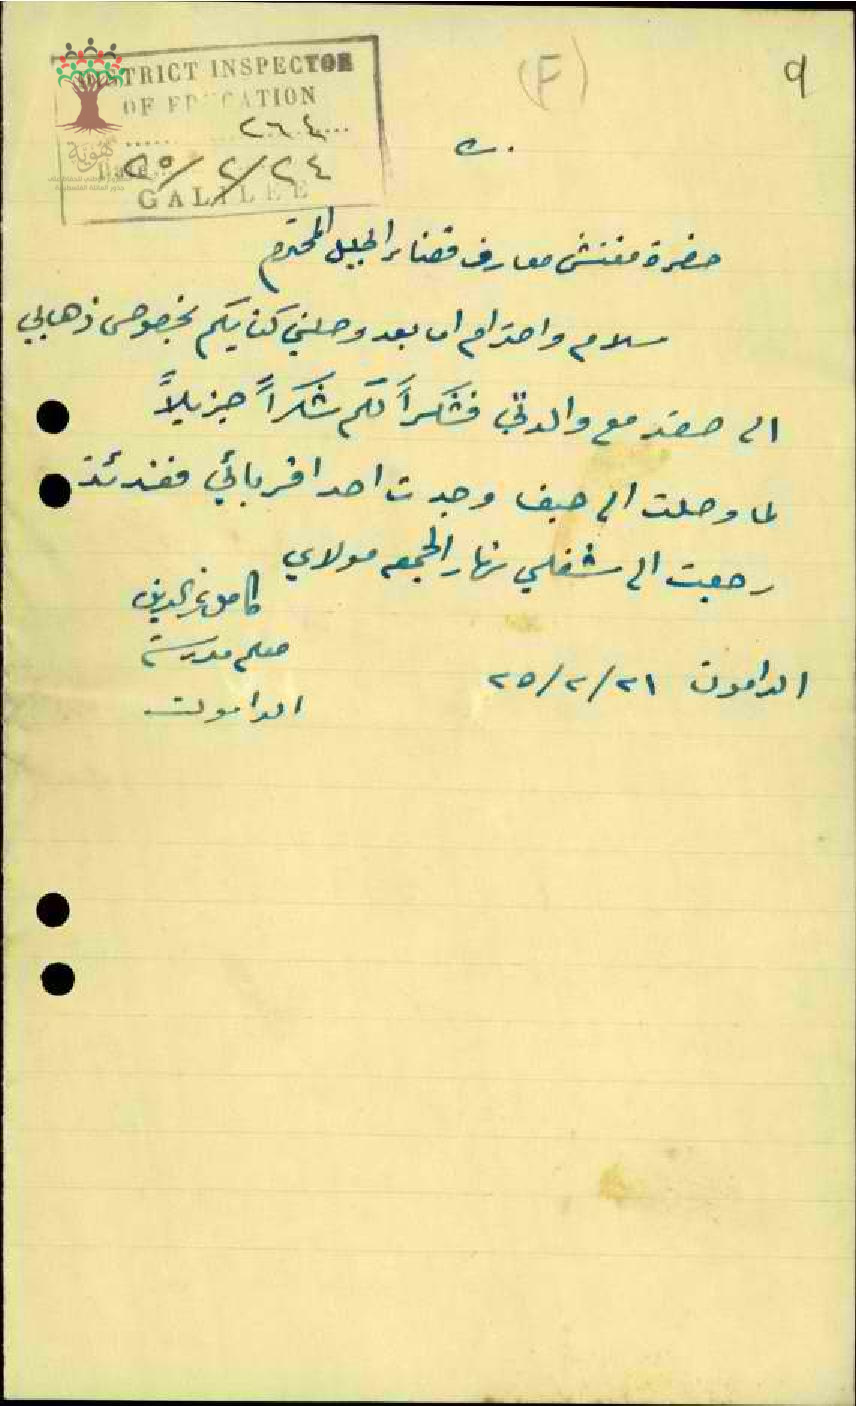 DISTRICT INSPECTOR
OF EDUCATION
٢٦٤
Date ٢٥/٢/٢٤
GALILEE
(F)
٩
حضرة مفتش معارف قضاء الجليل المحترم
سلام واحترام اما بعد وصلني كتابكم بخصوص ذهابي
الى صفد مع والدتي فشكراً لكم شكراً جزيلاً
لما وصلت الى حيفا وجدت احد اقربائي فعندئذ
رجعت الى شغلي نهار الجمعه مولاي
كامل
معلم مدرسة
الدامون
الدامون ٢٥/٢/٢١